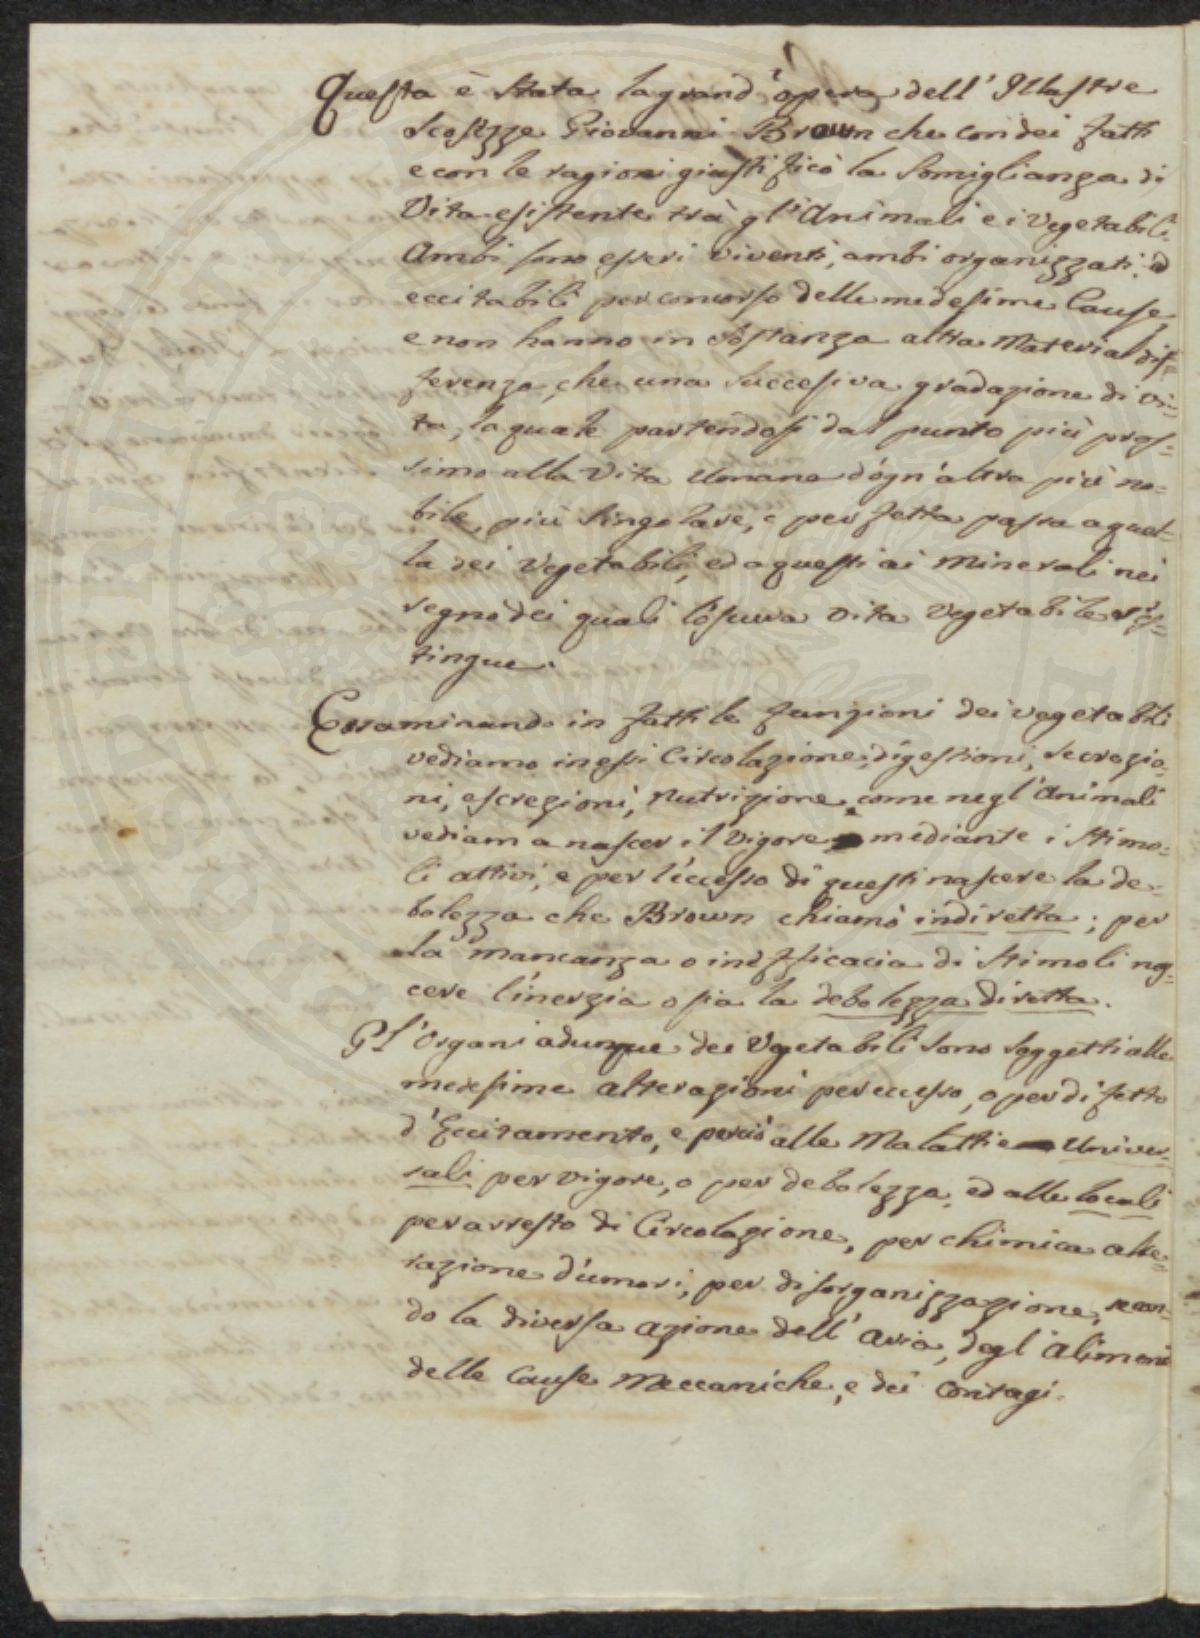 Questa è stata la grand'opera dell'Illustre
Scozzze Giovanni Brown che con dei fatti
e con le ragioni giustificò la Somiglianza di
Vita esistente trà gl'Animali e i Vegetabili.
Ambi sono esseri viventi, ambi organizzati, ed
eccitabili per concorso delle medesime Cause,
e non hanno in sostanza altra Material dif=
ferenza, che una succesiva gradazione di vi=
ta, la quale partendosi dal punto più pros=
simo alla Vita Umana d'ogn'altra più no=
bile, più singolare, e perfetta passa a quel=
la dei Vegetabili, ed a questi ai Minerali nei
regno dei quali l'oscura vita Vegetabile s'es=
tingue.
Essaminando in fatti le funzioni dei vegetabili
vediamo in essi Circolazione, digestioni, secrezio=
ni, escrezioni, Nutrizione, come negl'Animali
vediam a nascer il Vigore mediante i stimo=
li attivi, e per l'eccesso di questi nascere la de=
bolezza che Brown chiamò indiretta; per
la mancanza o inefficacia di stimoli nas=
cere l'inerzia o sia la debolezza diretta.
Gl'Organi adunque dei Vegetabili sono soggetti alle
medesime alterazioni per eccesso, o per difetto
d'Eccitamento, e perciò alle Malattie Univer=
sali per vigore, o per debolezza, ed alle locali
per arresto di Circolazione, per chimica alte=
razione d'umori, per disorganizzazione, secon=
do la diversa azione dell'Aria, degl'Alimenti
delle Cause Meccaniche, e dei Contagi.